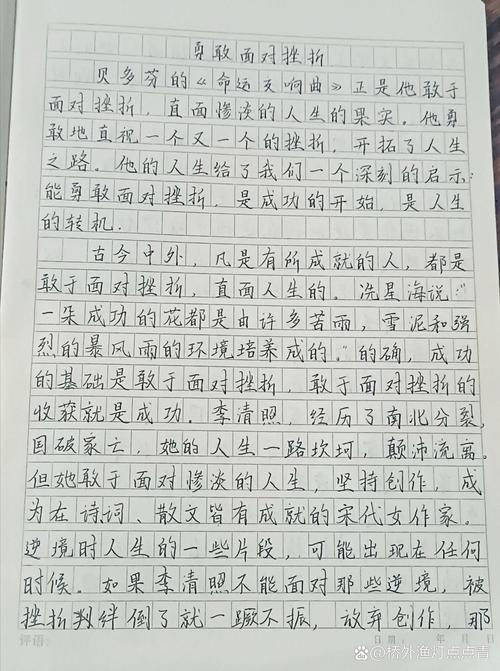 勇敢面对挫折
贝多芬的《命运交响曲》正是他敢于
面对挫折，直面惨淡的人生的果实。他勇
敢地直视一个又一个的挫折，开拓了人生
之路。他的人生给了我们一个深刻的启示：
能勇敢面对挫折，是成功的开始，是人生
的转机.
古今中外，凡是有所成就的人，都是
敢于面对挫折，直面人生的。冼星海说："
一朵成功的花都是由许多苦雨，雪泥和强
烈的暴风雨的环境培养成的。"的确，成功
的基础是敢于面对挫折，敢于面对挫折的
收获就是成功。李清照，经历了南北分裂，
国破家亡，她的人生一路坎坷，颠沛流离。
但她敢于面对惨淡的人生，坚持创作，成
为在诗词、散文皆有成就的宋代女作家。
逆境时人生的一些片段，可能出现在任何
时候。如果李清照不能面对那些逆境，被
挫折绊倒了就一蹶不振，放弃创作，那
评语：
日期： 年 月 日
@桥外渔灯点点青